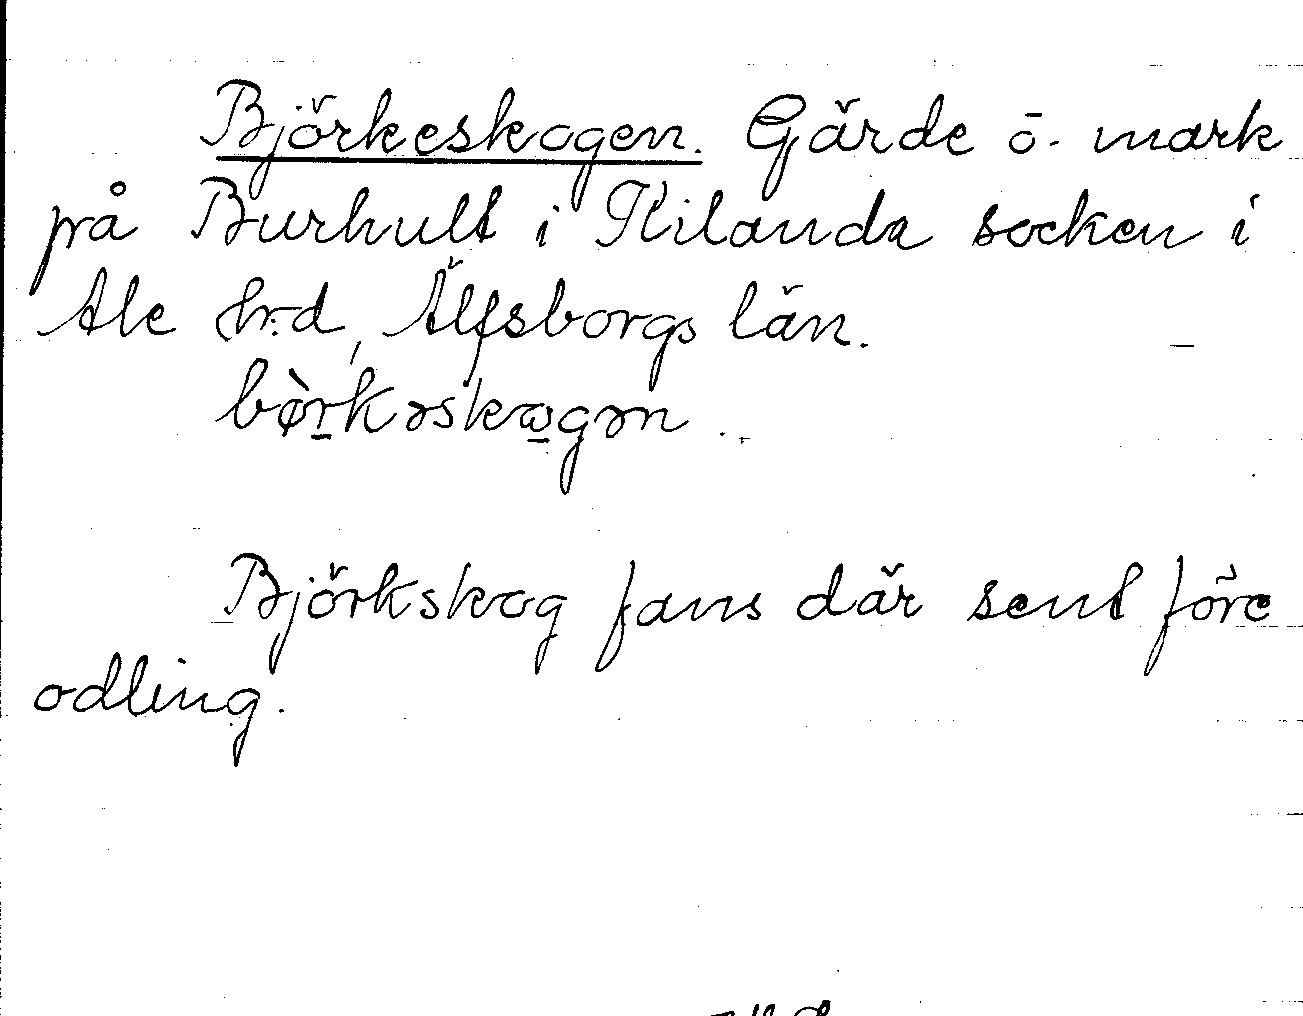 Björkeskogen. Gärde ö. mark
på Burhult i Kilanda socken i
Ale hrd, Älfsborgs län.
bø̀rkəskωgən.
Björkskog fans där sent före
odling.